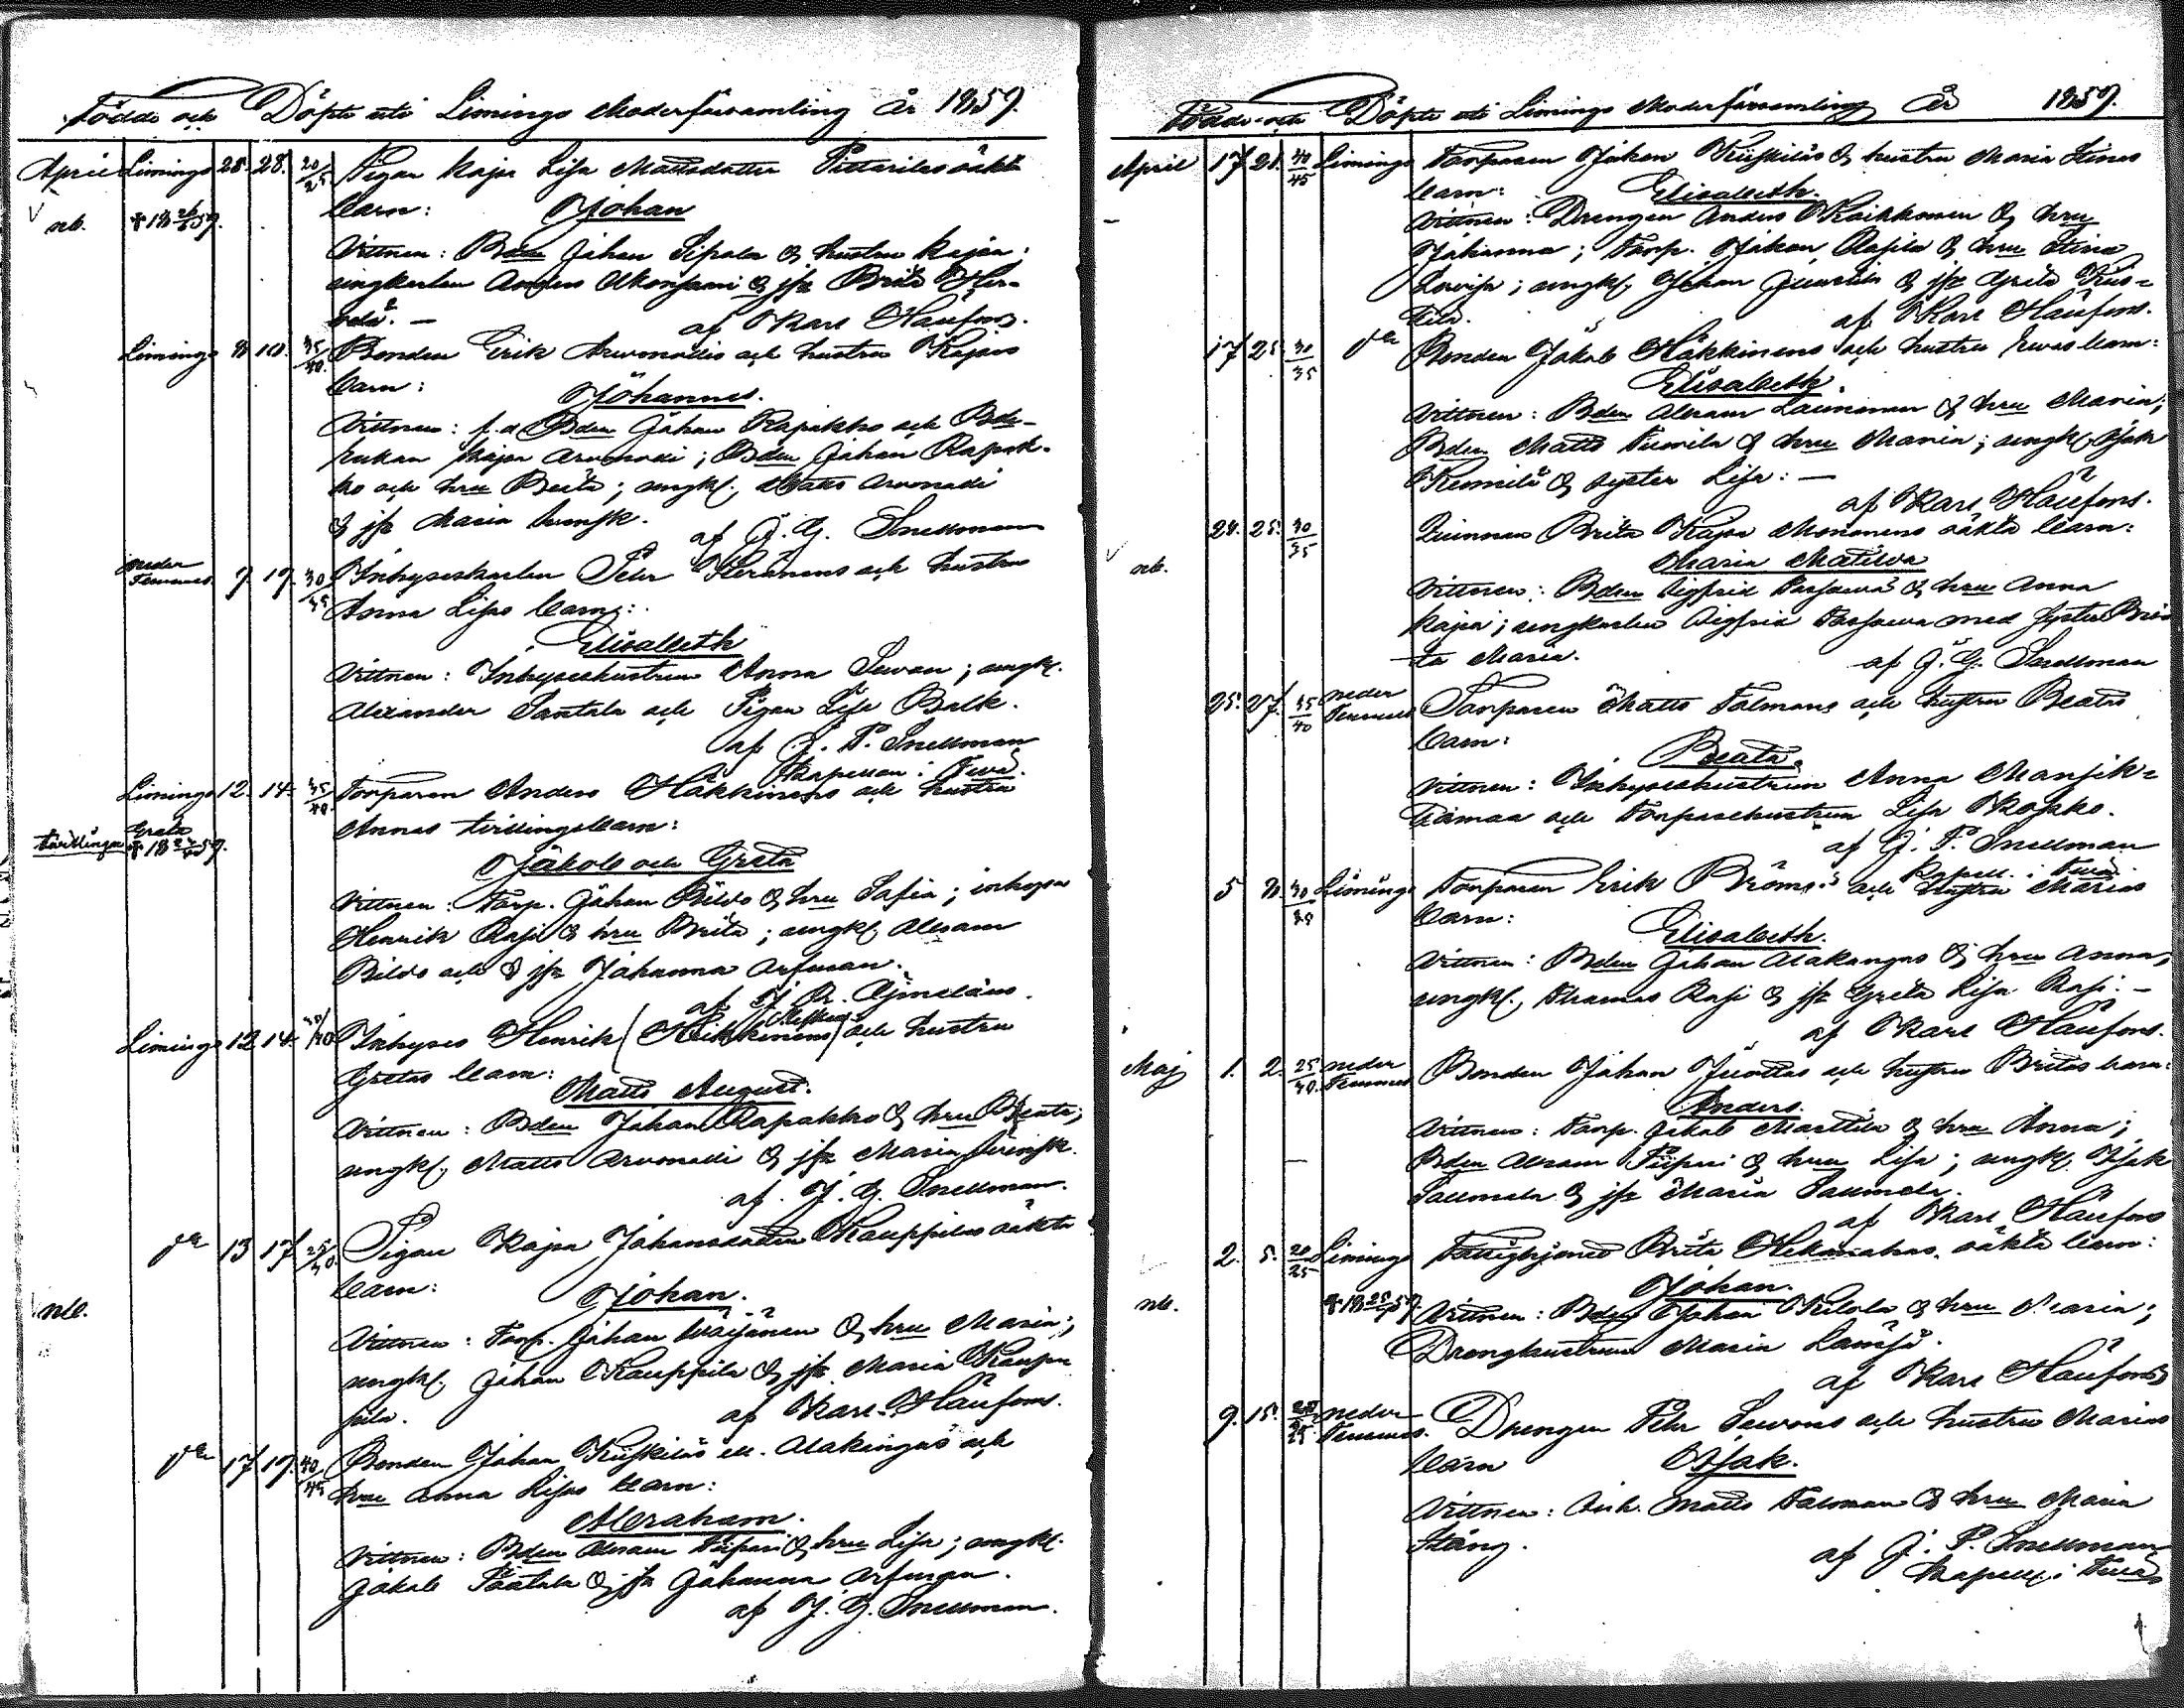 Födde och Döpte uti Limingo Moderförsamling År 1859.
April Limingo 25. 28. 20/25 Pigan Kajsa Lisa Mattsdotter Pittarilas oäkta
nb. barn: Johan
Vittnen: Bden Johan Sipola & hustru Kajsa;
ungkarlen Anders & jfr Brita Her-
af Karl Häufors.
Limingo 8 10. 35/40. Bonden Erik Arvonodis och hustru Kajsas
barn: Johannes.
Vittnen: f.d. Bden Johan Rapakko och Bde-
enkan Kajsa Arvonodi; Bden Johan Rapak-
ko och hru Beata; ungk. Matts Arvonodi
& jfr Maria af J. G. Snellman
neder Temmes 7. 17. 30/35 Inhyseskarlen Petr Heränens och hustru
Anna Lisas barn:
Elisabeth
Vittnen: Inhyseshustrun Anna Sevon; ungk.
Alexander Santala och Pigan Lisa Balk.
af J. P. Snellman
Kapellan i
Limingo 12. 14. 35/40. Torparen Anders Häkkinens och hustru
Annas tvillingsbarn:
tvillingar Greta
Jakob och Greta
Vittnen: Torp. Johan Bildo & hru Sofia; inhyses
Henrik Rasi & hru Brita; ungk. Abram
Bildo och & jfr Johanna Arfman.
af
Limingo 12 14. Inhyses Henrik (Heikkinens) och hustru
Gretas barn:
Matts August.
Vittnen: Bden Johan Rapakko & hru Beata;
ungk. Matts Arvonodi & jfr Maria
af J. G. Snellman.
d:o 13 17 25/30. Pigan Kajsa Johansdotter Kauppilas oäkta
barn: Johan.
nb.
Vittnen: Torp. Johan Väijänen & hru Maria;
ungk. Johan Kauppila & jfr Maria Kaup-
pila. af Karl Häufors.
d:o 17 19. 40/45 Bonden Johan Kriskilas ell. Alakangas och
hru Anna Lisas barn:
Abraham.
Vittnen: Bden Abram Piipari & hru Lisa; ungk.
Jakob Paatala & jfr Johanna Arfman.
af J. G. Snellman.
Födde och Döpte uti Limingo Moderförsamling År 1859.
April 17 21. 40/45 Limingo Torparen Johan Kriskilas & hustru Maria Stinas
barn: Elisabeth.
Vittnen: Drengen Anders Kaikkonen & hru
Johanna; Torp. Johan & hru Stina
Lovisa; ungk. Johan Juustila & jfr Greta Kris-
kila. af Karl Häufors.
17 25. 30/35 d:o Bonden Jakob Häkkinens och hustru Evas barn:
Elisabeth.
Vittnen: Bden Abram & hru Maria;
Bden Matts Tuomila & hru Maria; ungk. Isak
& syster Lisa: —
af Karl Häufors.
24. 25. 30/35 Quinnan Brita Kajsa Mononens oäkta barn:
nb. Maria Matilda
Vittnen: Bden Sigfrid & hru Anna
Kajsa; ungkarlen Sigfrid med syster Bri-
ta Maria. af J. G. Snellman
25. 27. 35/40 neder Temmes Torparen Matts Talmans och hustru Beatas
barn:
Beata.
Vittnen: Inhyseshustrun Anna Mansik-
kamaa och Torparehustrun Lisa Kojkko.
af J. P. Snellman
Kapell. i
5 8. Limingo Torparen Erik Bröms och hustru Marias
barn: Elisabeth.
Vittnen: Bden Johan Alakangas & hru Anna,
ungk. Thomas Rasi & jfr Greta Lisa Rasi: —
af Karl Häufors.
Maj 1. 2. 25/30. neder Temmes Bonden Johan Juottas och hustru Britas barn:
Anders.
Vittnen: Torp. Jakob Marttila & hru Anna;
Bden Abram Piipari & hru Lisa; ungk. Isak
Sallmela & jfr Maria Sallmela.
af Karl Häufors
2. 5. 20/25 Limingo Fattighjonet Brita oäkta barn:
Johan.
nb. Vittnen: Bden Johan Kilola & hru Maria;
Drenghustrun Maria
af Karl Häufors
9. 15. neder Temmes. Drengen Petr Sevons och hustru Marias
barn Isak.
Vittnen: Inh. Matts Talman & hru Maria
Stång. af J. P. Snellman
Kapell. i